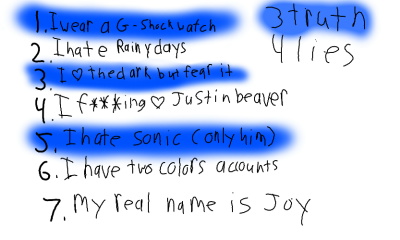 1. I wear a G-Shock watch
2. I hate Rainy days
3. I ♡ the dark but fear it
4. I f***ing ♡ Justin beaver
5. I hate sonic (only him)
6. I have two colors accounts
7. My real name is Joy
3 truth
4 lies